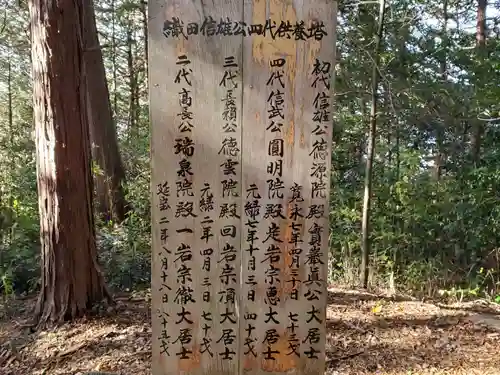 織田信雄公四代供養塔
初代信雄公徳源院殿實巌真公大居士
寛永七年四月三十日 七十三歳
四代信武公圓明院殿走岩宗忠大居士
元緑七年十月三十日 四十歳
三代長頼公徳雲院殿回岩宗頂大居士
元緑二年四月三日 七十歳
二代高長公瑞泉院殿一岩宗徹大居士
延宝二年八月十八日 八十五歳